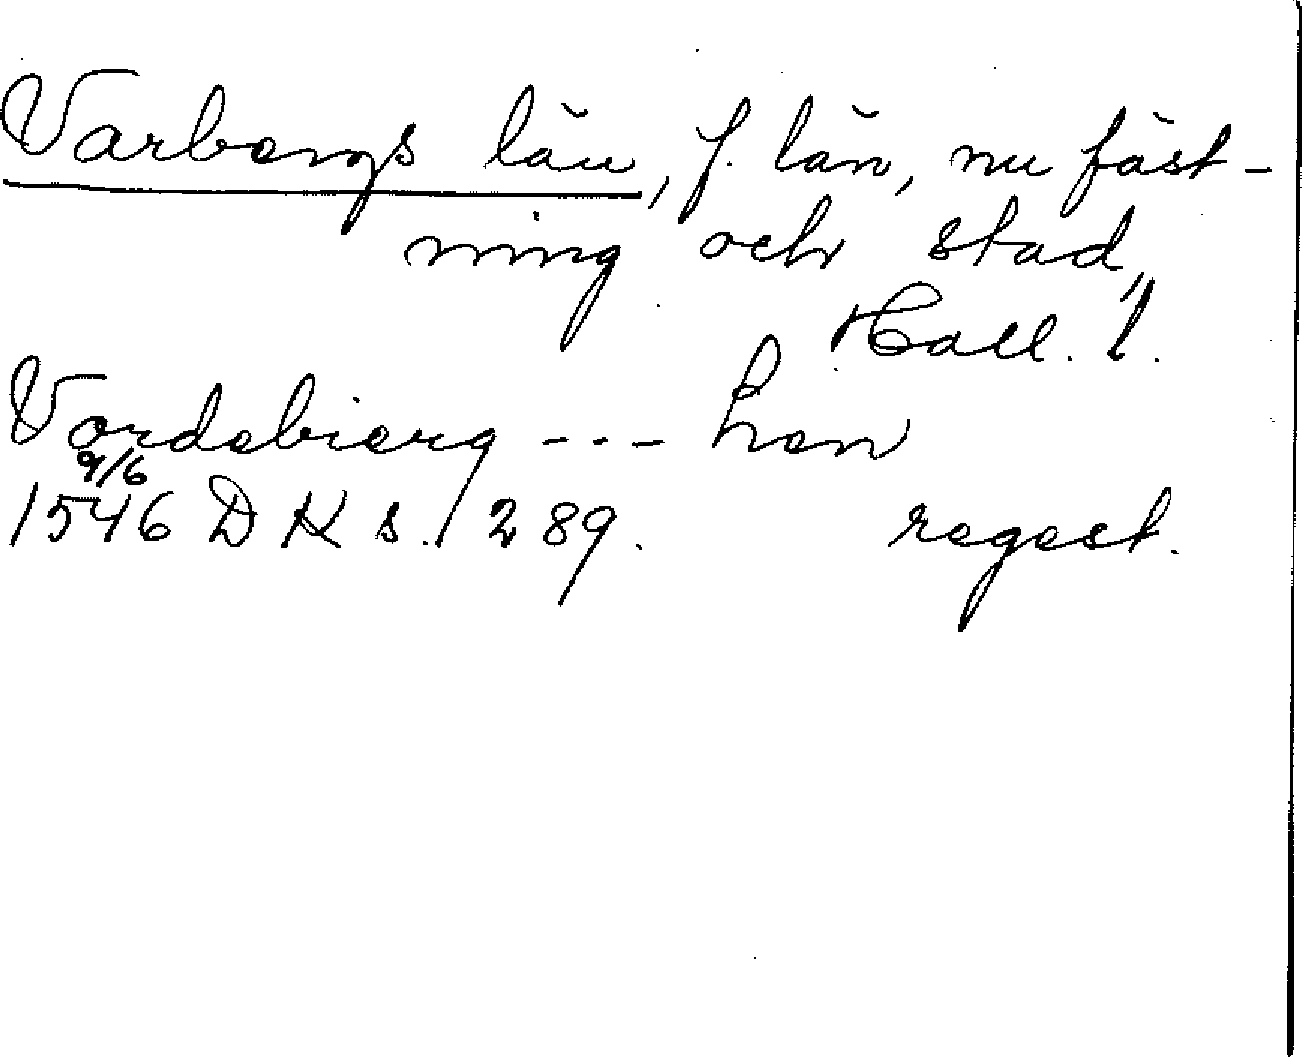 Varbergs län, f. län, nu fäst-
ning och stad,
Hall. l.
Vordebierg --- Len
9/6
1546 DK s. 289. regest.